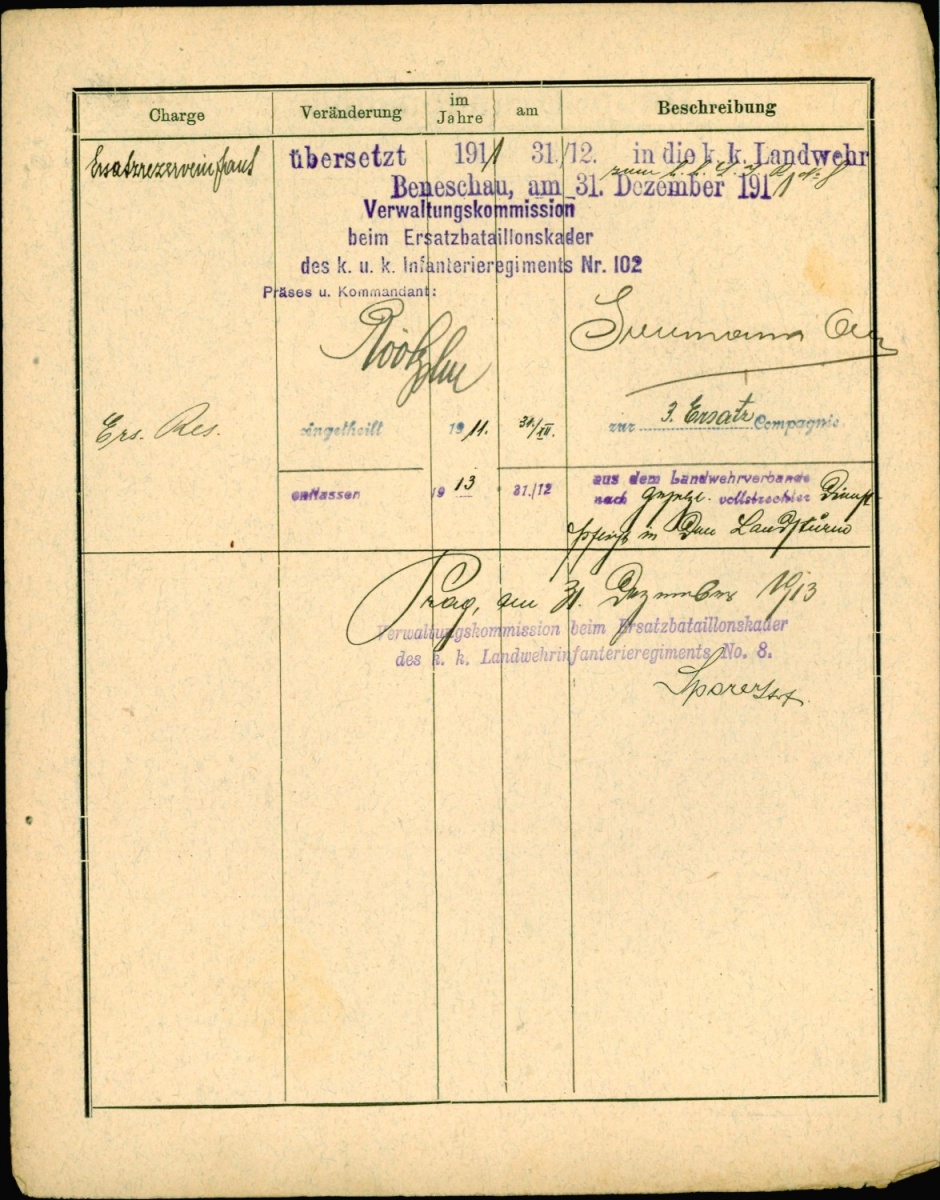 Charge Veränderung im Jahre am Beschreibung
übersetzt 1911 31./12. in die k. k. Landwehr
zum k. k. L. I. R. No 8
Beneschau, am 31. Dezember 1911
Verwaltungskommission
beim Ersatzbataillonskader
des k. u. k. Infanterieregiments Nr. 102
Präses u. Kommandant:
Ers. Res. eingetheilt 1911. 31./XII. zur 3. Ersatz Compagnie.
entlassen 1913 31./12 aus dem Landwehrverbande
nach gesetzl. vollstreckter Dienst-
pflicht in den Landsturm
Prag, am 31. Dezember 1913
Verwaltungskommission beim Ersatzbataillonskader
des k. k. Landwehrinfanterieregiments No. 8.